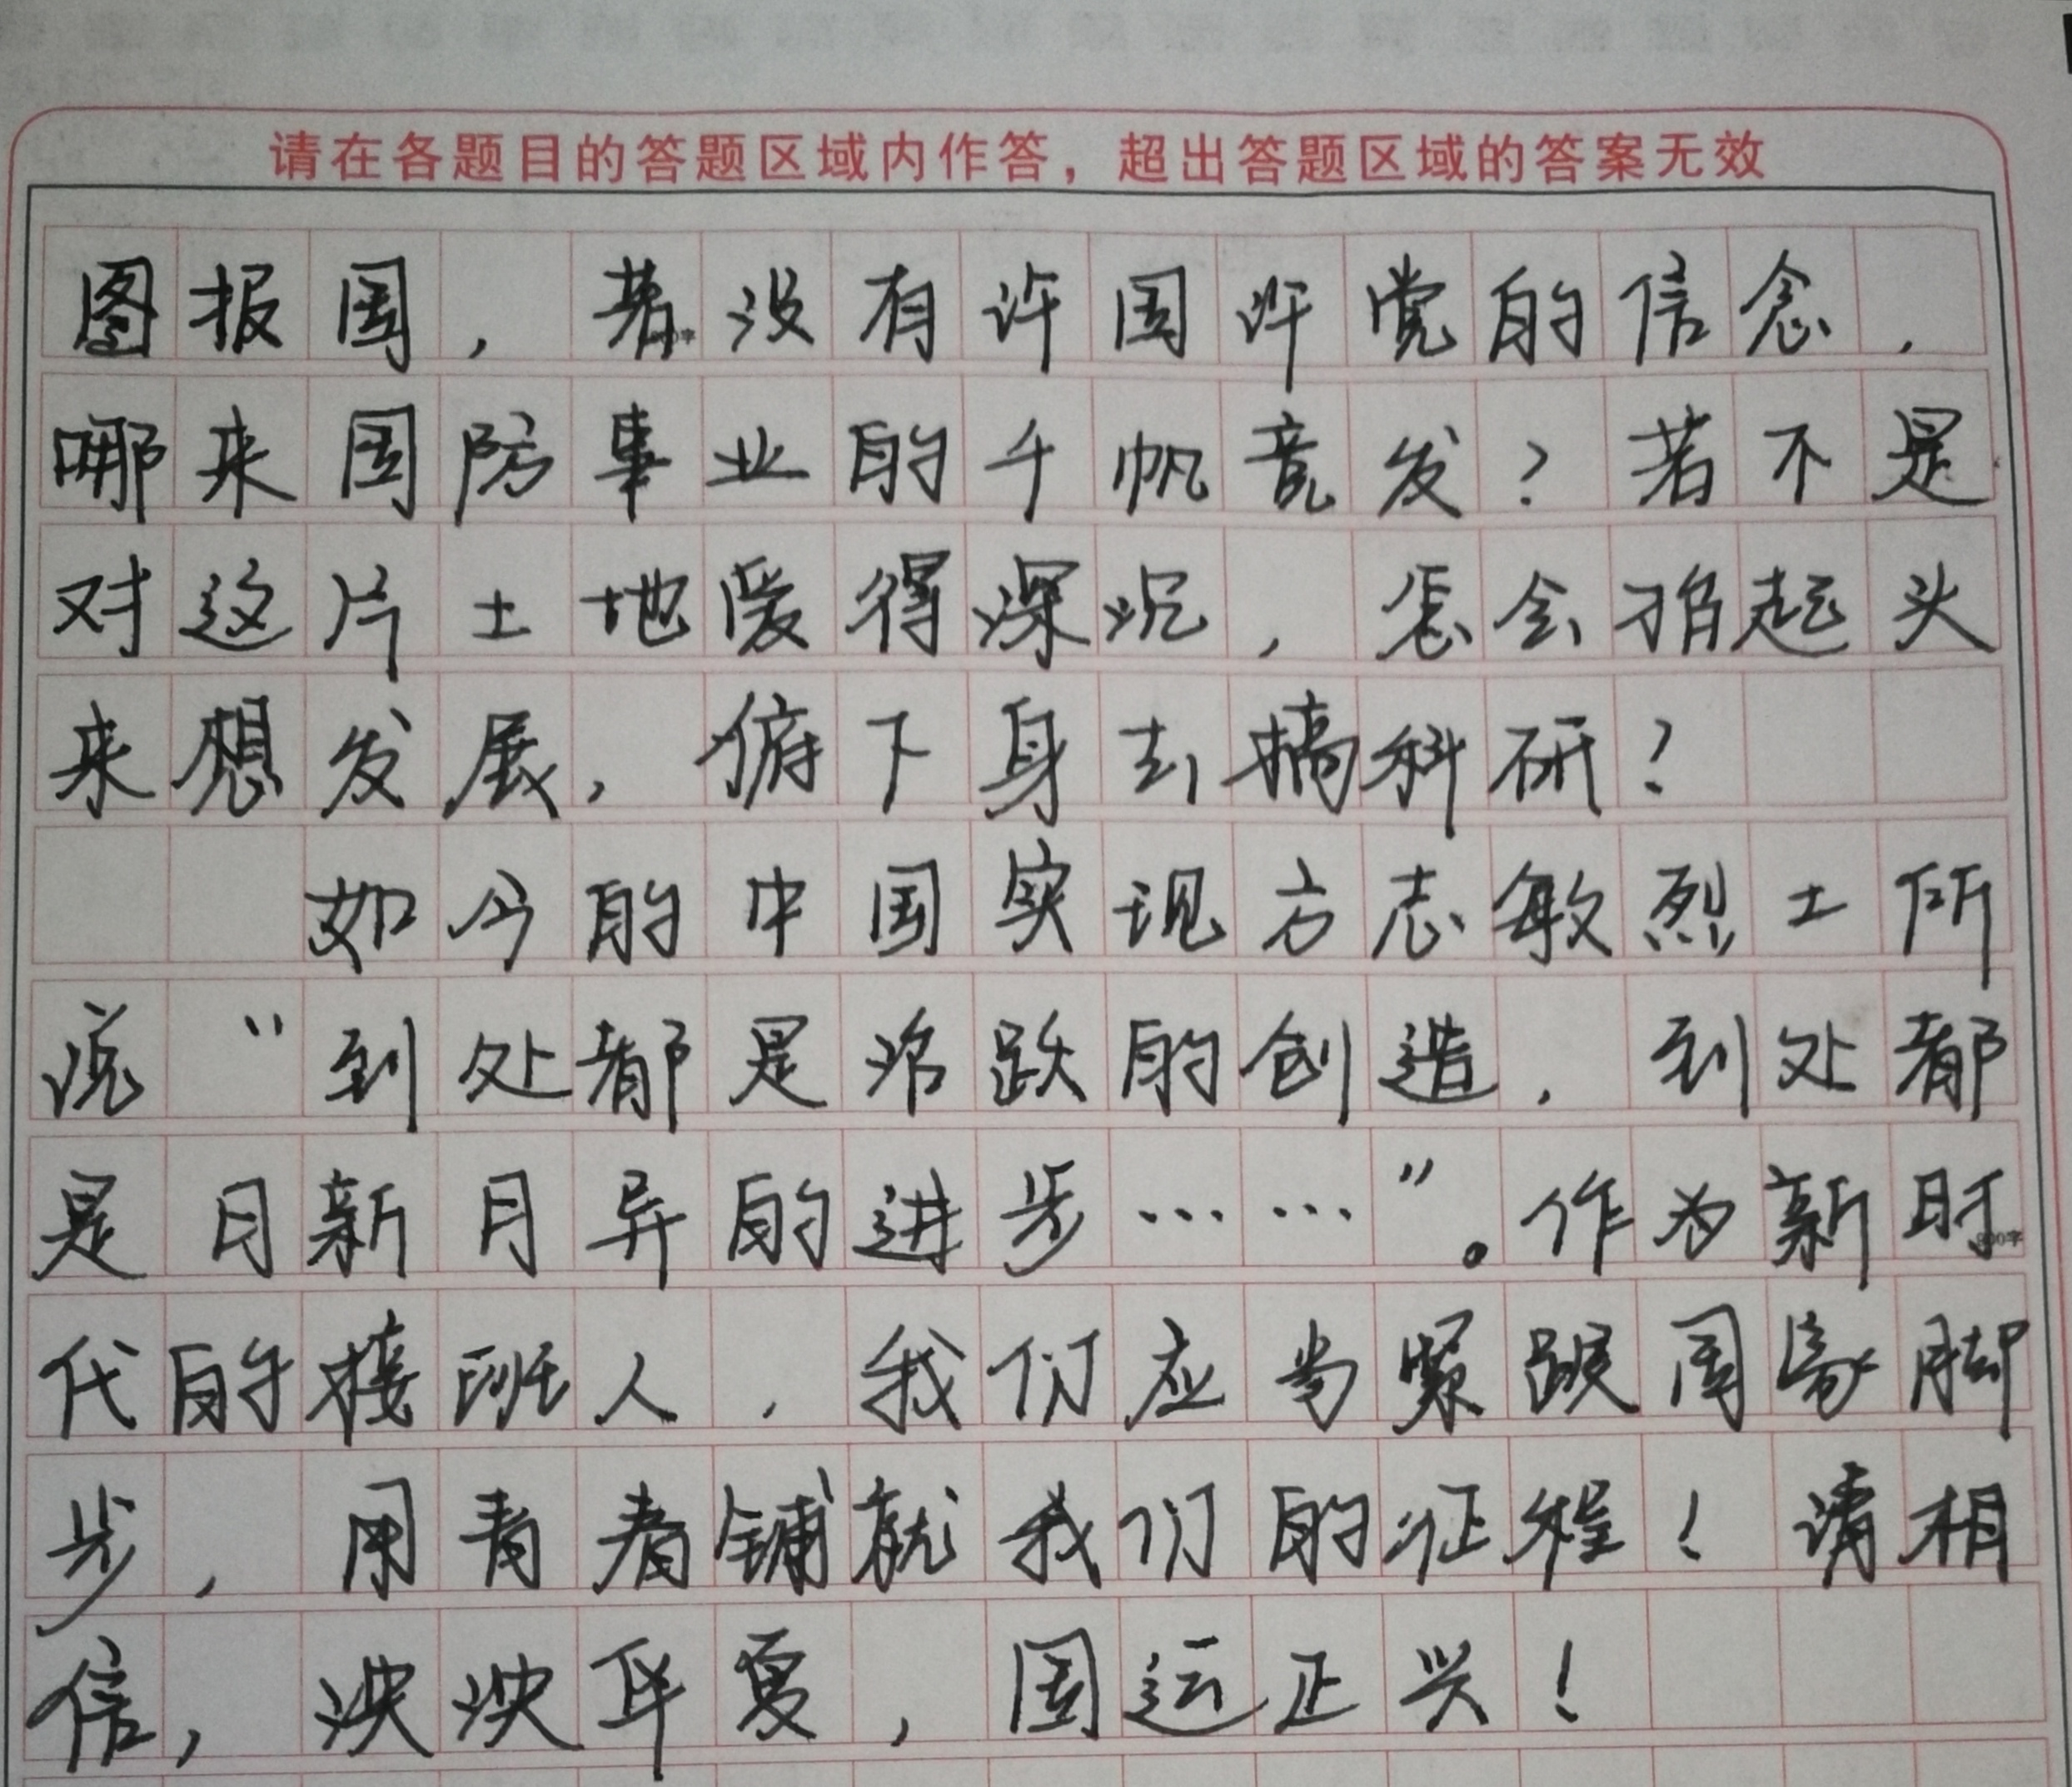 请在各题目的答题区域内作答，超出答题区域的答案无效
图报国，若没有许国许党的信念，
哪来国防事业的千帆竞发？若不是
对这片土地爱得深沉，怎会抬起头
来想发展，俯下身去搞科研？
如今的中国实现方志敏烈士所
说“到处都是活跃的创造，到处都
是日新月异的进步……”。作为新时
代的接班人，我们应当紧跟国家脚
步，用青春铺就我们的征程！请相
信，泱泱华夏，国运正兴！